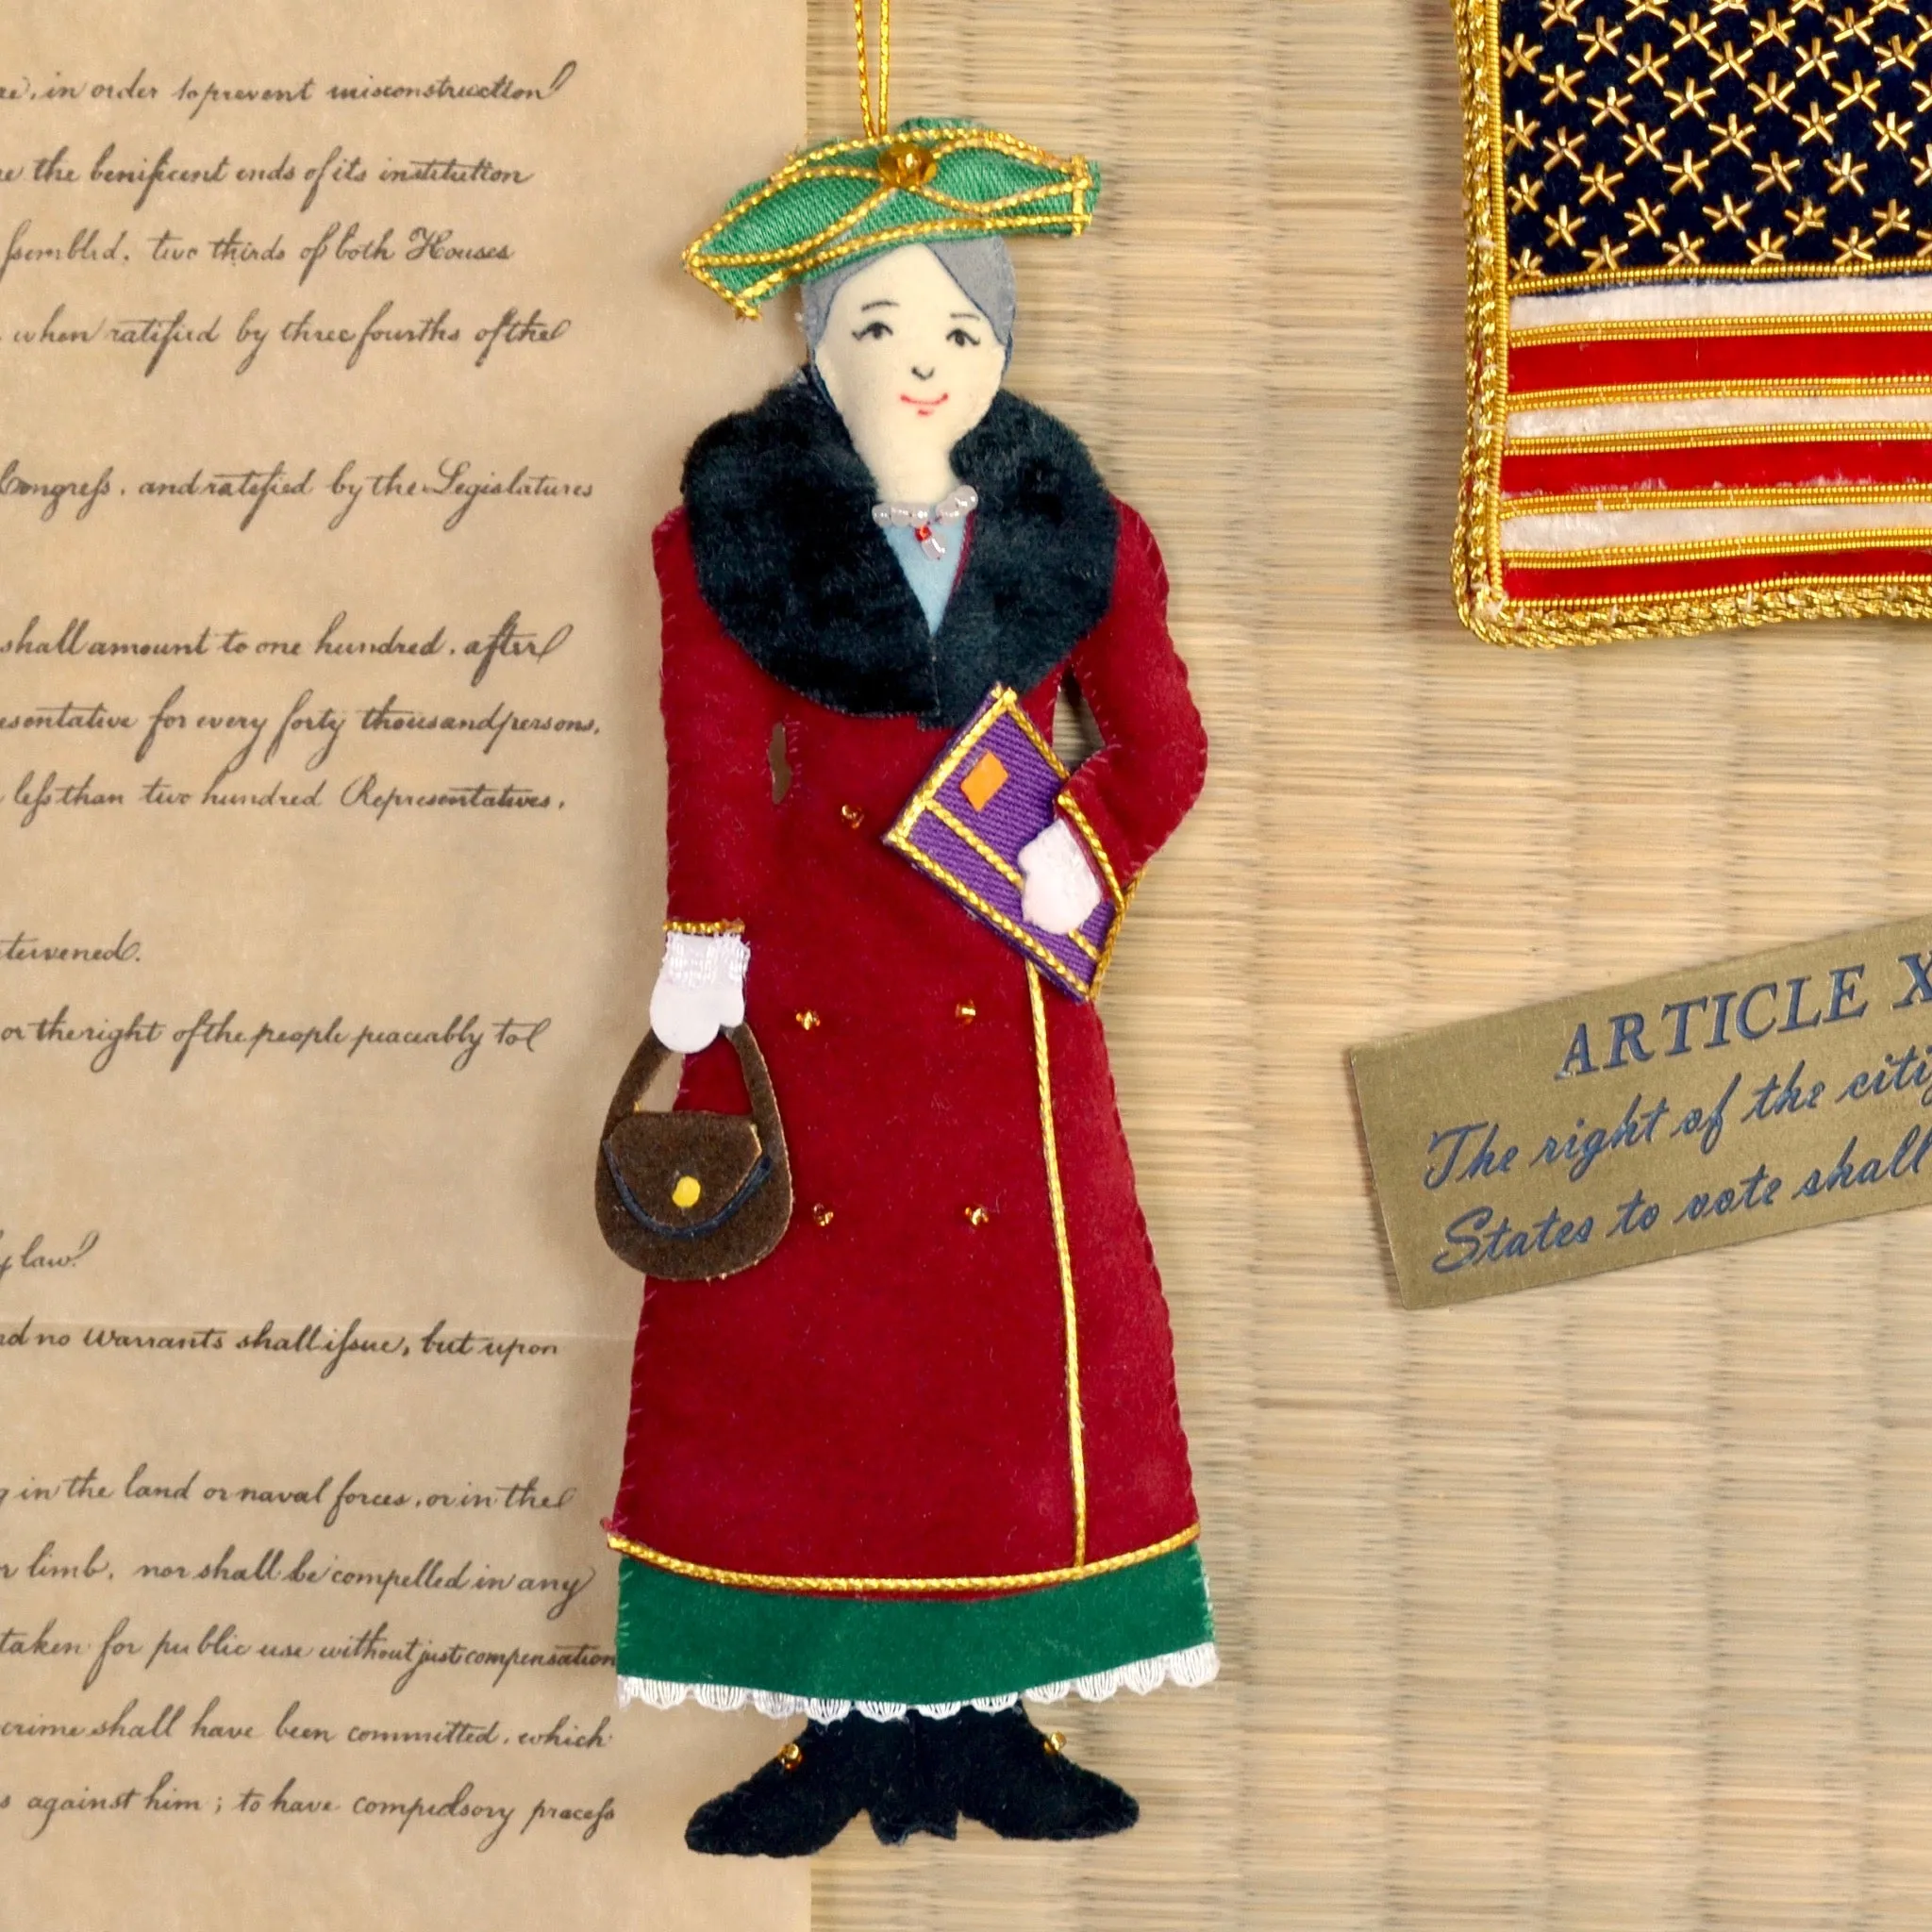 in order to prevent misconstruction
the benificent ends of its institution
two thirds of both Houses
when ratified by three fourths of the
Congreſs, and ratified by the Legislatures
shall amount to one hundred, after
for every forty thousand persons,
leſs than two hundred Representatives,
or the right of the people peaceably to
law.
no warrants shall iſsue, but upon
in the land or naval forces, or in the
limb, nor shall be compelled in any
taken for public use without just compensation
crime shall have been committed, which
against him; to have compulsory proceſs
ARTICLE X
The right of the citi
States to vote shall